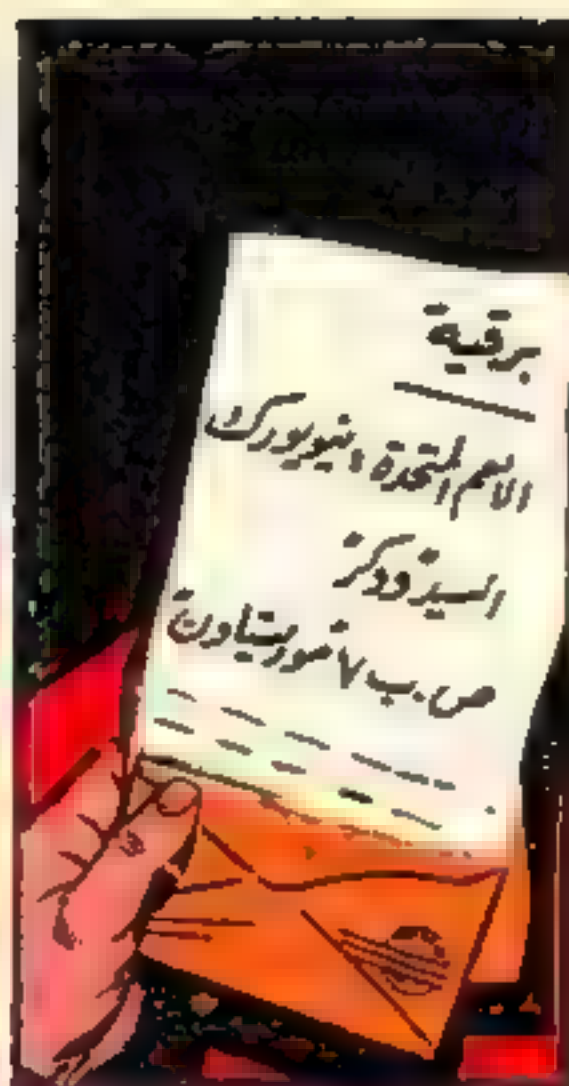 برقية
الامم المتحدة، نيويورك
السيد ودكز
ص.ب ٧ موريتاون